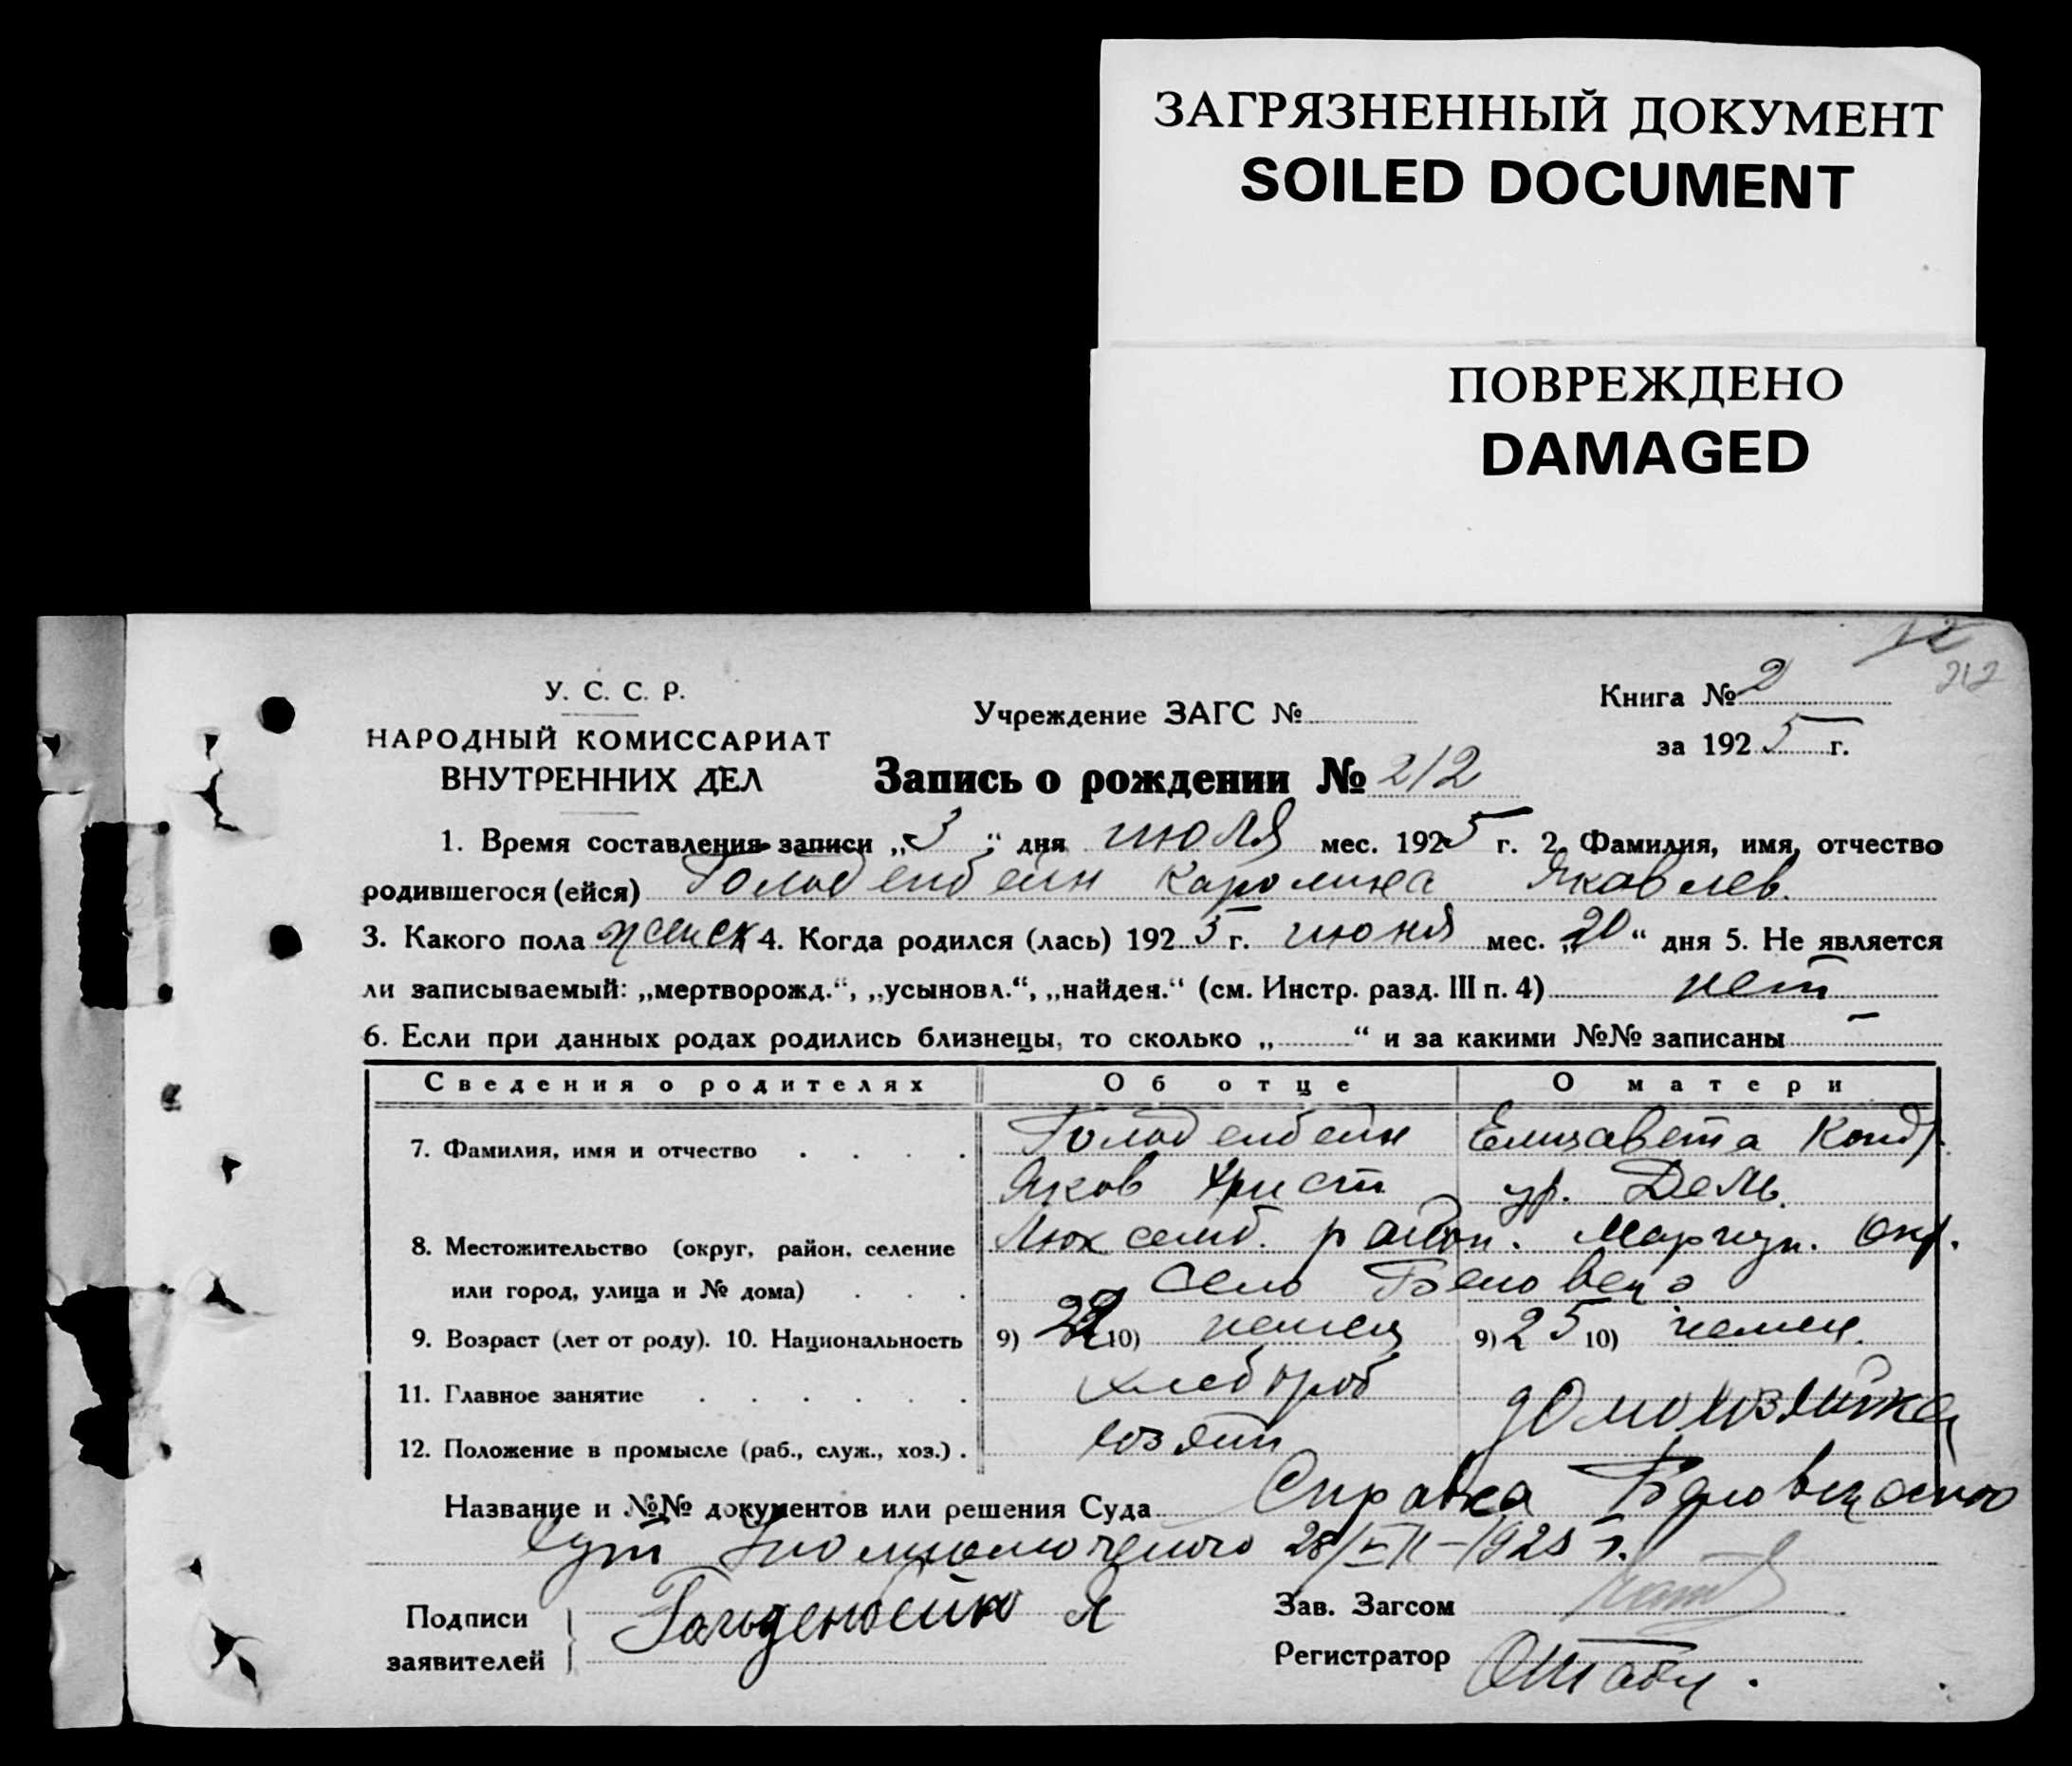 ЗАГРЯЗНЕННЫЙ ДОКУМЕНТ
SOILED DOCUMENT
ПОВРЕЖДЕНО
DAMAGED
212
У. С. С. Р.
НАРОДНЫЙ КОМИССАРИАТ
ВНУТРЕННИХ ДЕЛ
Учреждение ЗАГС №
Книга № 2
за 1925 г.
Запись о рождении № 212
1. Время составления записи „3“ дня июля мес. 1925 г. 2. Фамилия, имя, отчество
родившегося (ейся) Гольденбейн Каролина Яковлев.
3. Какого пола женск 4. Когда родился (лась) 1925 г. июня мес. „20“ дня 5. Не является
ли записываемый: „мертворожд.“, „усыновл.“, „найден.“ (см. Инстр. разд. III п. 4) нет
6. Если при данных родах родились близнецы, то сколько „ “ и за какими №№ записаны –
Сведения о родителях Об отце О матери
7. Фамилия, имя и отчество . . . . Гольденбейн Елизавета Конд.
Яков Христ ур. Дель.
8. Местожительство (округ, район, селение Люксемб. район. Мариуп. Окр.
или город, улица и № дома) . . . Село
9. Возраст (лет от роду). 10. Национальность 9) 10) немец 9) 25 10) немец.
11. Главное занятие . . . . . . хлебороб домохозяйка
12. Положение в промысле (раб., служ., хоз.) . хозяин
Название и №№ документов или решения Суда Справка
28/ г.
Подписи
заявителей Гольденбейн Я
Зав. Загсом
Регистратор